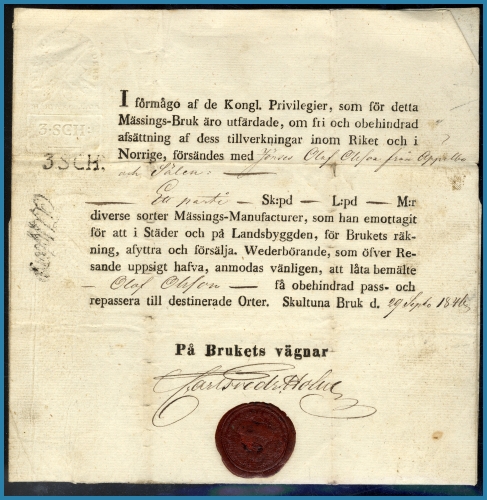 3·SCH:
3 SCH.
I förmågo af de Kongl. Privilegier, som för detta
Mässings-Bruk äro utfärdade, om fri och obehindrad
afsättning af dess tillverkningar inom Riket och i
Norrige, försändes med Jonses Olof Olsson från Appelbo
och Sälens
En parti — Sk:pd — L:pd — M:r
diverse sorter Mässings-Manufacturer, som han emottagit
för att i Städer och på Landsbyggden, för Brukets räk-
ning, afyttra och försälja. Wederbörande, som öfver Re-
sande uppsigt hafva, anmodas vänligen, att låta bemälte
— Olof Olsson — få obehindrad pass- och
repassera till destinerade Orter. Skultuna Bruk d. 29 Septr
På Brukets vägnar